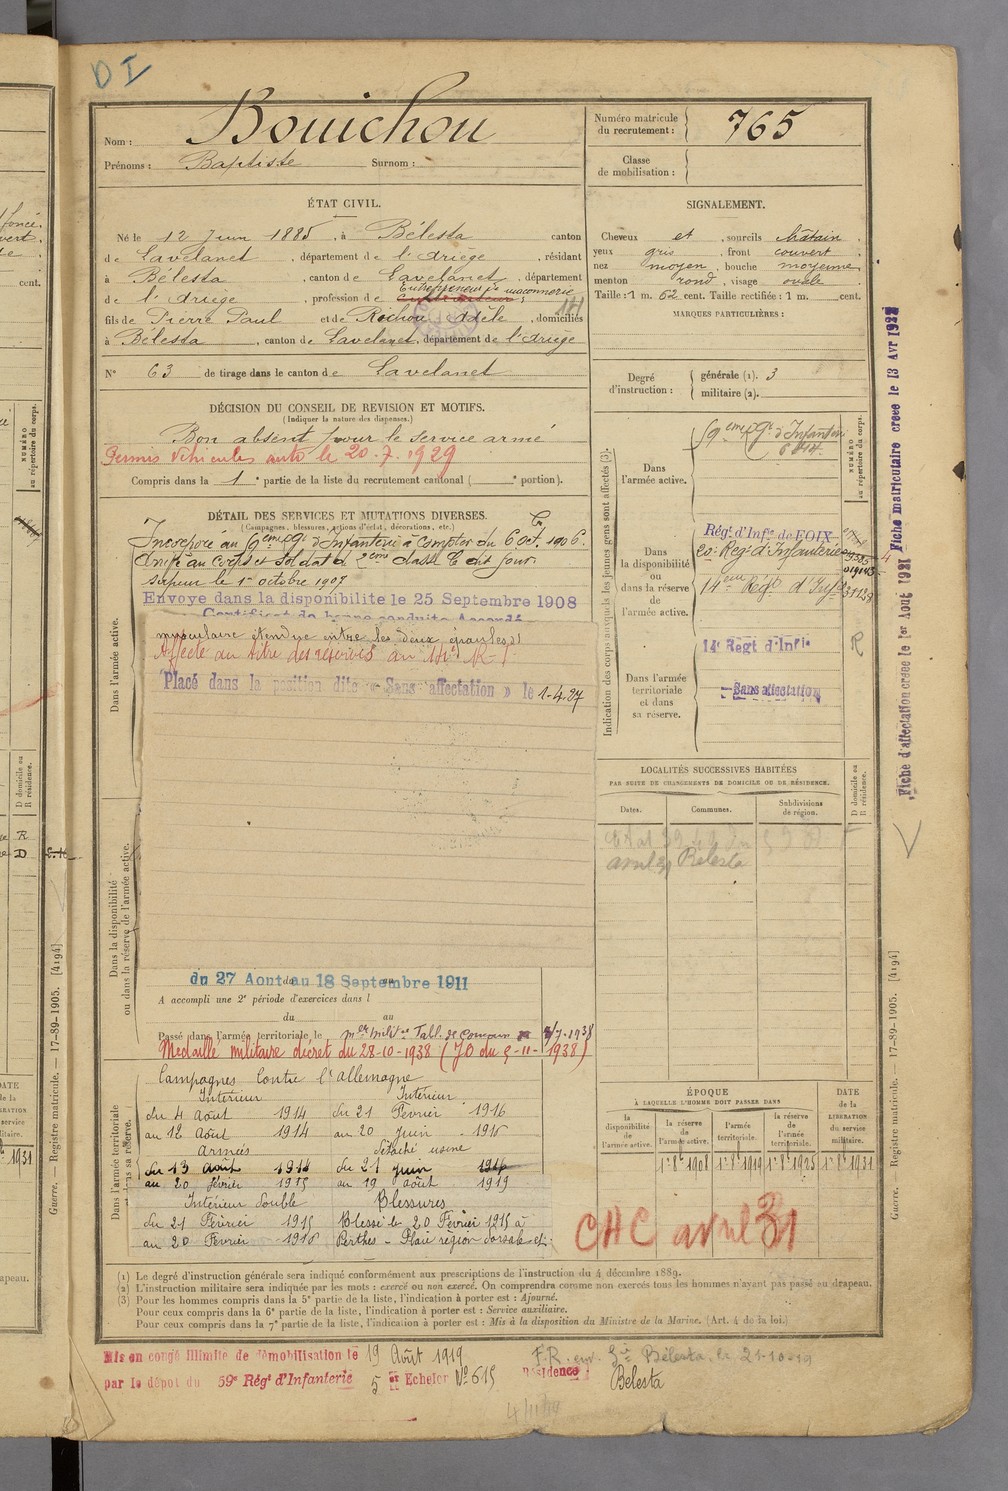 DI
Nom : Bouichou
Prénoms : Baptiste Surnom :
Numéro matricule du recrutement : 765
Classe de mobilisation :
ÉTAT CIVIL.
Né le 12 Juin 1885, à Bélesta canton
de Lavelanet, département de l'Ariège, résidant
à Bélesta, canton de Lavelanet, département
de l'Ariège, profession de Entrepreneur de maçonnerie
fils de Pierre Paul et de Rochou Adèle, domiciliés
à Bélesta, canton de Lavelanet, département de l'Ariège
N° 63 de tirage dans le canton de Lavelanet
SIGNALEMENT.
Cheveux et, sourcils châtain,
yeux gris, front couvert,
nez moyen, bouche moyenne,
menton rond, visage ovale.
Taille : 1 m. 62 cent. Taille rectifiée : 1 m. cent.
MARQUES PARTICULIÈRES :
Degré d'instruction : générale (1). 3
militaire (2).
DÉCISION DU CONSEIL DE REVISION ET MOTIFS.
(Indiquer la nature des dispenses.)
Bon absent pour le service armé
Permis Véhicules auto le 20.7.1929
Compris dans la 1e partie de la liste du recrutement cantonal ( e portion).
DÉTAIL DES SERVICES ET MUTATIONS DIVERSES.
(Campagnes, blessures, actions d'éclat, décorations, etc.)
Incorporé au 9eme Rgt d'Infanterie à compter du 6 Oct. 1906.
Arrivé au corps et soldat de 2eme classe le dit jour.
Sapeur le 1er octobre 1907
Envoyé dans la disponibilité le 25 Septembre 1908
Certificat de bonne conduite Accordé
musculaire étendue entre les deux épaules
Affecté au titre des réserves au 14e R.I.
Placé dans la position dite « Sans affectation » le 1-4.27
du 27 Aout au 18 Septembre 1911
A accompli une 2e période d'exercices dans l
du au
Passé dans l'armée territoriale le
7-1938
Médaille militaire décret du 28-10-1938 (JO du 5-11-1938)
Dans l'armée active.
Dans la disponibilité ou dans la réserve de l'armée active.
Dans l'armée territoriale et dans sa réserve.
Campagnes Contre l'Allemagne
Intérieur
du 4 Août 1914
au 12 Août 1914
Armées
du 13 Août 1914
au 20 février 1915
Intérieur double
du 21 Février 1915
au 20 Février 1916
Intérieur
du 21 Février 1916
au 20 juin 1916
Détaché usine
du 21 juin 1916
au 19 août 1919
Blessures
Blessé le 20 Février 1915 à
Perthes - Plaie région dorsale et
Indication des corps auxquels les jeunes gens sont affectés (3).
NUMÉRO au répertoire du corps.
Dans l'armée active.
9eme Rgt d'Infanterie
Dans la disponibilité ou dans la réserve de l'armée active.
Régt d'Infie de FOIX
Regt d'Infanterie
14eme Régt d'Infie
Dans l'armée territoriale et dans sa réserve.
14e Regt d'Infie
R
Sans affectation
LOCALITÉS SUCCESSIVES HABITÉES
PAR SUITE DE CHANGEMENTS DE DOMICILE OU DE RÉSIDENCE.
Dates. Communes. Subdivisions de région. D domicile ou R résidence.
Belesta
ÉPOQUE
À LAQUELLE L'HOMME DOIT PASSER DANS
la disponibilité de l'armée active. la réserve de l'armée active. l'armée territoriale. la réserve de l'armée territoriale.
DATE de la LIBÉRATION du service militaire.
1er 8e 1908 1er 8e 1919 1er 8e 1925 1er 8e 1931
CHC avril 31
(1) Le degré d'instruction générale sera indiqué conformément aux prescriptions de l'instruction du 4 décembre 1889.
(2) L'instruction militaire sera indiquée par les mots : exercé ou non exercé. On comprendra comme non exercés tous les hommes n'ayant pas passé au drapeau.
(3) Pour les hommes compris dans la 5e partie de la liste, l'indication à porter est : Ajourné.
Pour ceux compris dans la 6e partie de la liste, l'indication à porter est : Service auxiliaire.
Pour ceux compris dans la 7e partie de la liste, l'indication à porter est : Mis à la disposition du Ministre de la Marine. (Art. 4 de la loi.)
Mis en congé illimité de démobilisation le 19 Août 1919
par le dépôt du 59e Régt d'Infanterie 5 er Echelon N° 615
Bélesta le 21-10-19
Résidence Belesta
Fiche d'affectation créée le 1er Aout 1921 Fiche matriculaire créée le 13 Avr 1922
Guerre. — Registre matricule. — 17-89-1905. [4194]
Guerre. — Registre matricule. — 17-89-1905. [4194]